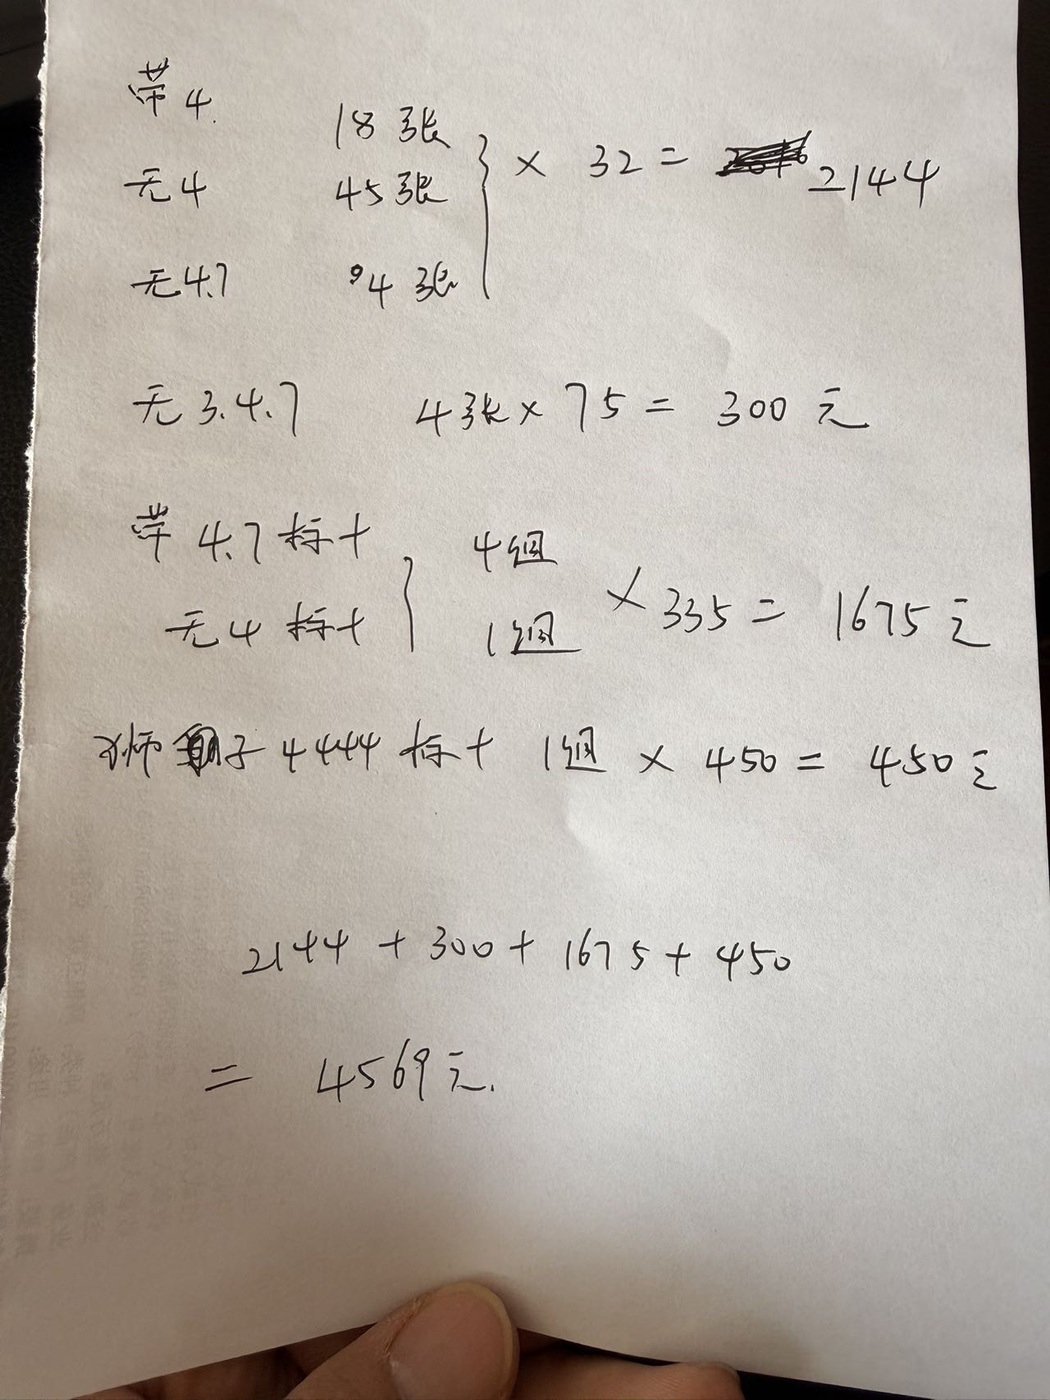 带4 18张
无4 45张 } × 32 = 2144
无4.7 4张
无3.4.7 4张 × 75 = 300元
带4.7标十 4组
无4标十 } 1组 × 335 = 1675元
狮子4444标十 1组 × 450 = 450元
2144 + 300 + 1675 + 450
= 4569元.